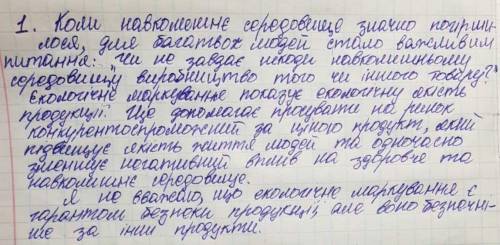 1. Коли навколишнє середовище значно погірши-
лося, для багатьох людей стало важливим
питання: чи не завдає шкоди навколишньому
середовищу виробництво того чи іншого товару?
Екологічне маркування показує екологічну якість
продукції. Що допомагає просувати на ринок
конкурентоспроможний за ціною продукт, який
підвищує якість життя людей та одночасно
зменшує негативний вплив на здоров'є та
навколишнє середовище.
Я не вважаю, що екологічне маркування є
гарантом безпеки продукції, але воно безпечні-
ше за інші продукти.